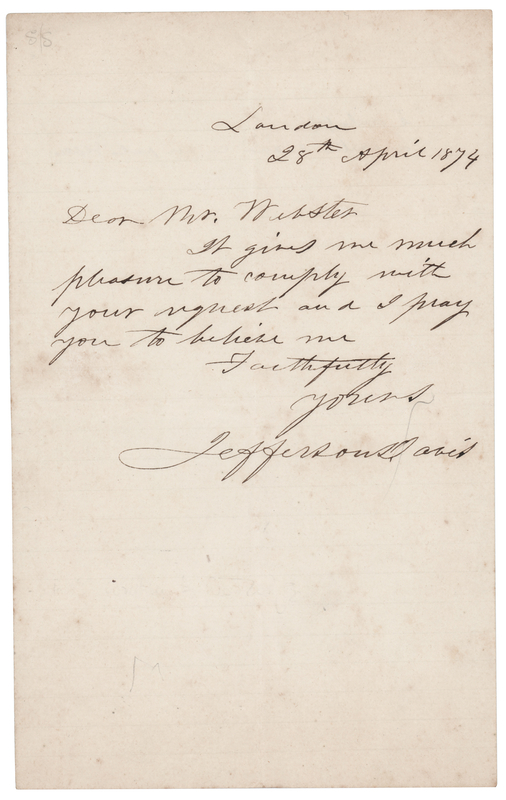 88
London
28th April 1874
Dear Mr. Webster
It gives me much
pleasure to comply with
your request and I pray
you to believe me
Faithfully
yours
Jefferson Davis